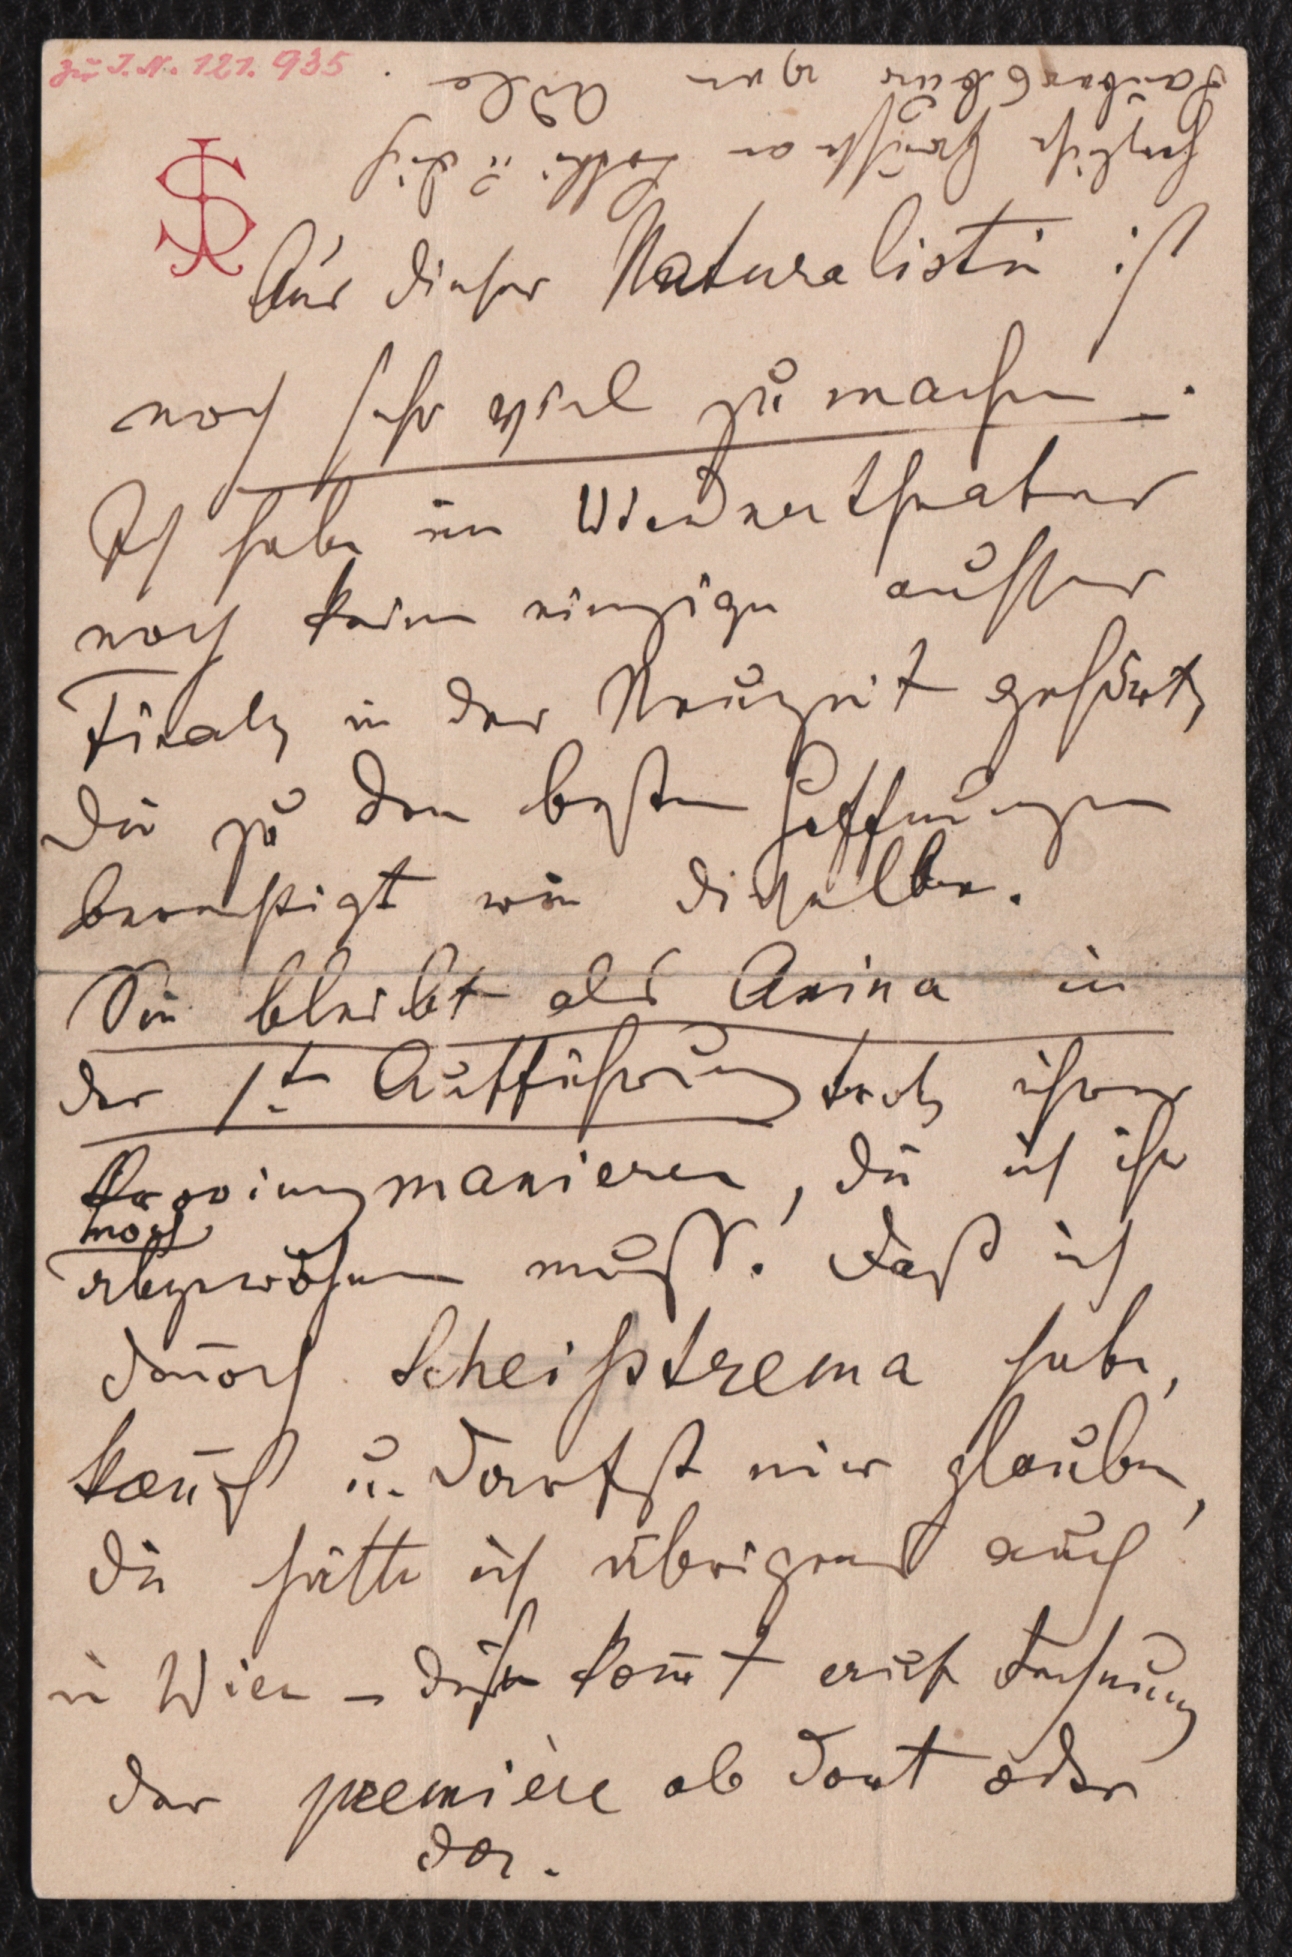 zu I. N. 121.935
Aus dieser Naturalistin ist
noch sehr viel zu machen –.
Ich habe im Wiednertheater
noch keine einzige ausser
Finaly in der Neuzeit gehört,
die zu den besten Hoffnungen
berechtigt wie dieselbe.
Sie bleibt als Arsina in
der 1ten Aufführung trotz ihrer
Provinzmanieren, die ich ihr
noch
abgewöhnen muss. Daß ich
dennoch Scheißtrema habe,
kannst u. darfst mir glauben,
die hätte ich übrigens auch
in Wien – diese kommt auf Rechnung
der première ob dort oder
da.
herzliche Grüsse an u. dich
Alle